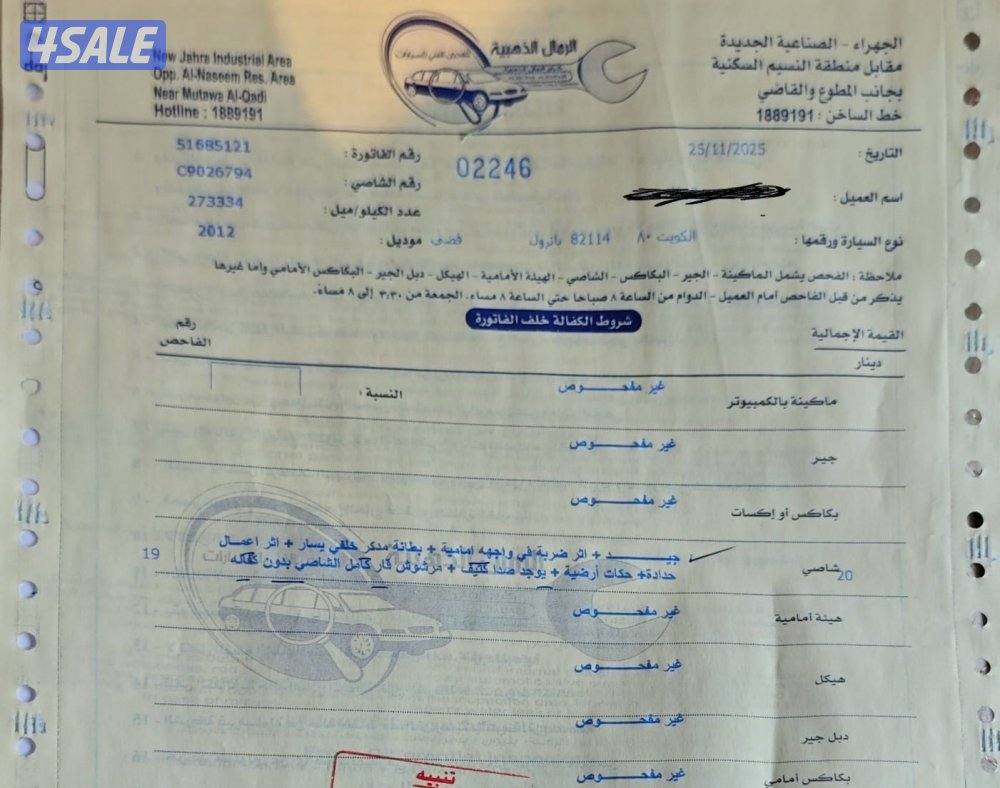 4SALE
New Jahra Industrial Area
Opp. Al-Naseem Res. Area
Near Mutawa Al-Qadi
Hotline : 1889191
الرمال الذهبية
للفحص الفني للسيارات
الجهراء - الصناعية الجديدة
مقابل منطقة النسيم السكنية
بجانب المطوع والقاضي
خط الساخن : 1889191
التاريخ : 25/11/2025
02246
رقم الفاتورة : 51685121
اسم العميل :
رقم الشاصي : C9026794
عدد الكيلو/ميل : 273334
نوع السيارة ورقمها : الكويت ٨٠ 82114 باترول فضي
موديل : 2012
ملاحظة : الفحص يشمل الماكينة - الجير - البكاكس - الشاصي - الهيئة الأمامية - الهيكل - دبل الجير - البكاكس الأمامي واما غيرها
يذكر من قبل الفاحص أمام العميل - الدوام من الساعة ٨ صباحا حتى الساعة ٨ مساء. الجمعة من ٣:٣٠ إلى ٨ مساءً.
شروط الكفالة خلف الفاتورة
القيمة الإجمالية
دينار
رقم
الفاحص
ماكينة بالكمبيوتر غير مفحوص النسبة :
جير غير مفحوص
بكاكس أو إكسات غير مفحوص
شاصي 20 جيد + اثر ضربة في واجهه امامية + بطانة مدكر خلفي يسار + اثر اعمال 19
حدادة+ حكات أرضية + يوجد صدا كثيف + مرشوش قار كامل الشاصي بدون كفاله
هيئة أمامية غير مفحوص
هيكل غير مفحوص
دبل جير غير مفحوص
بكاكس أمامي غير مفحوص
تنبيه